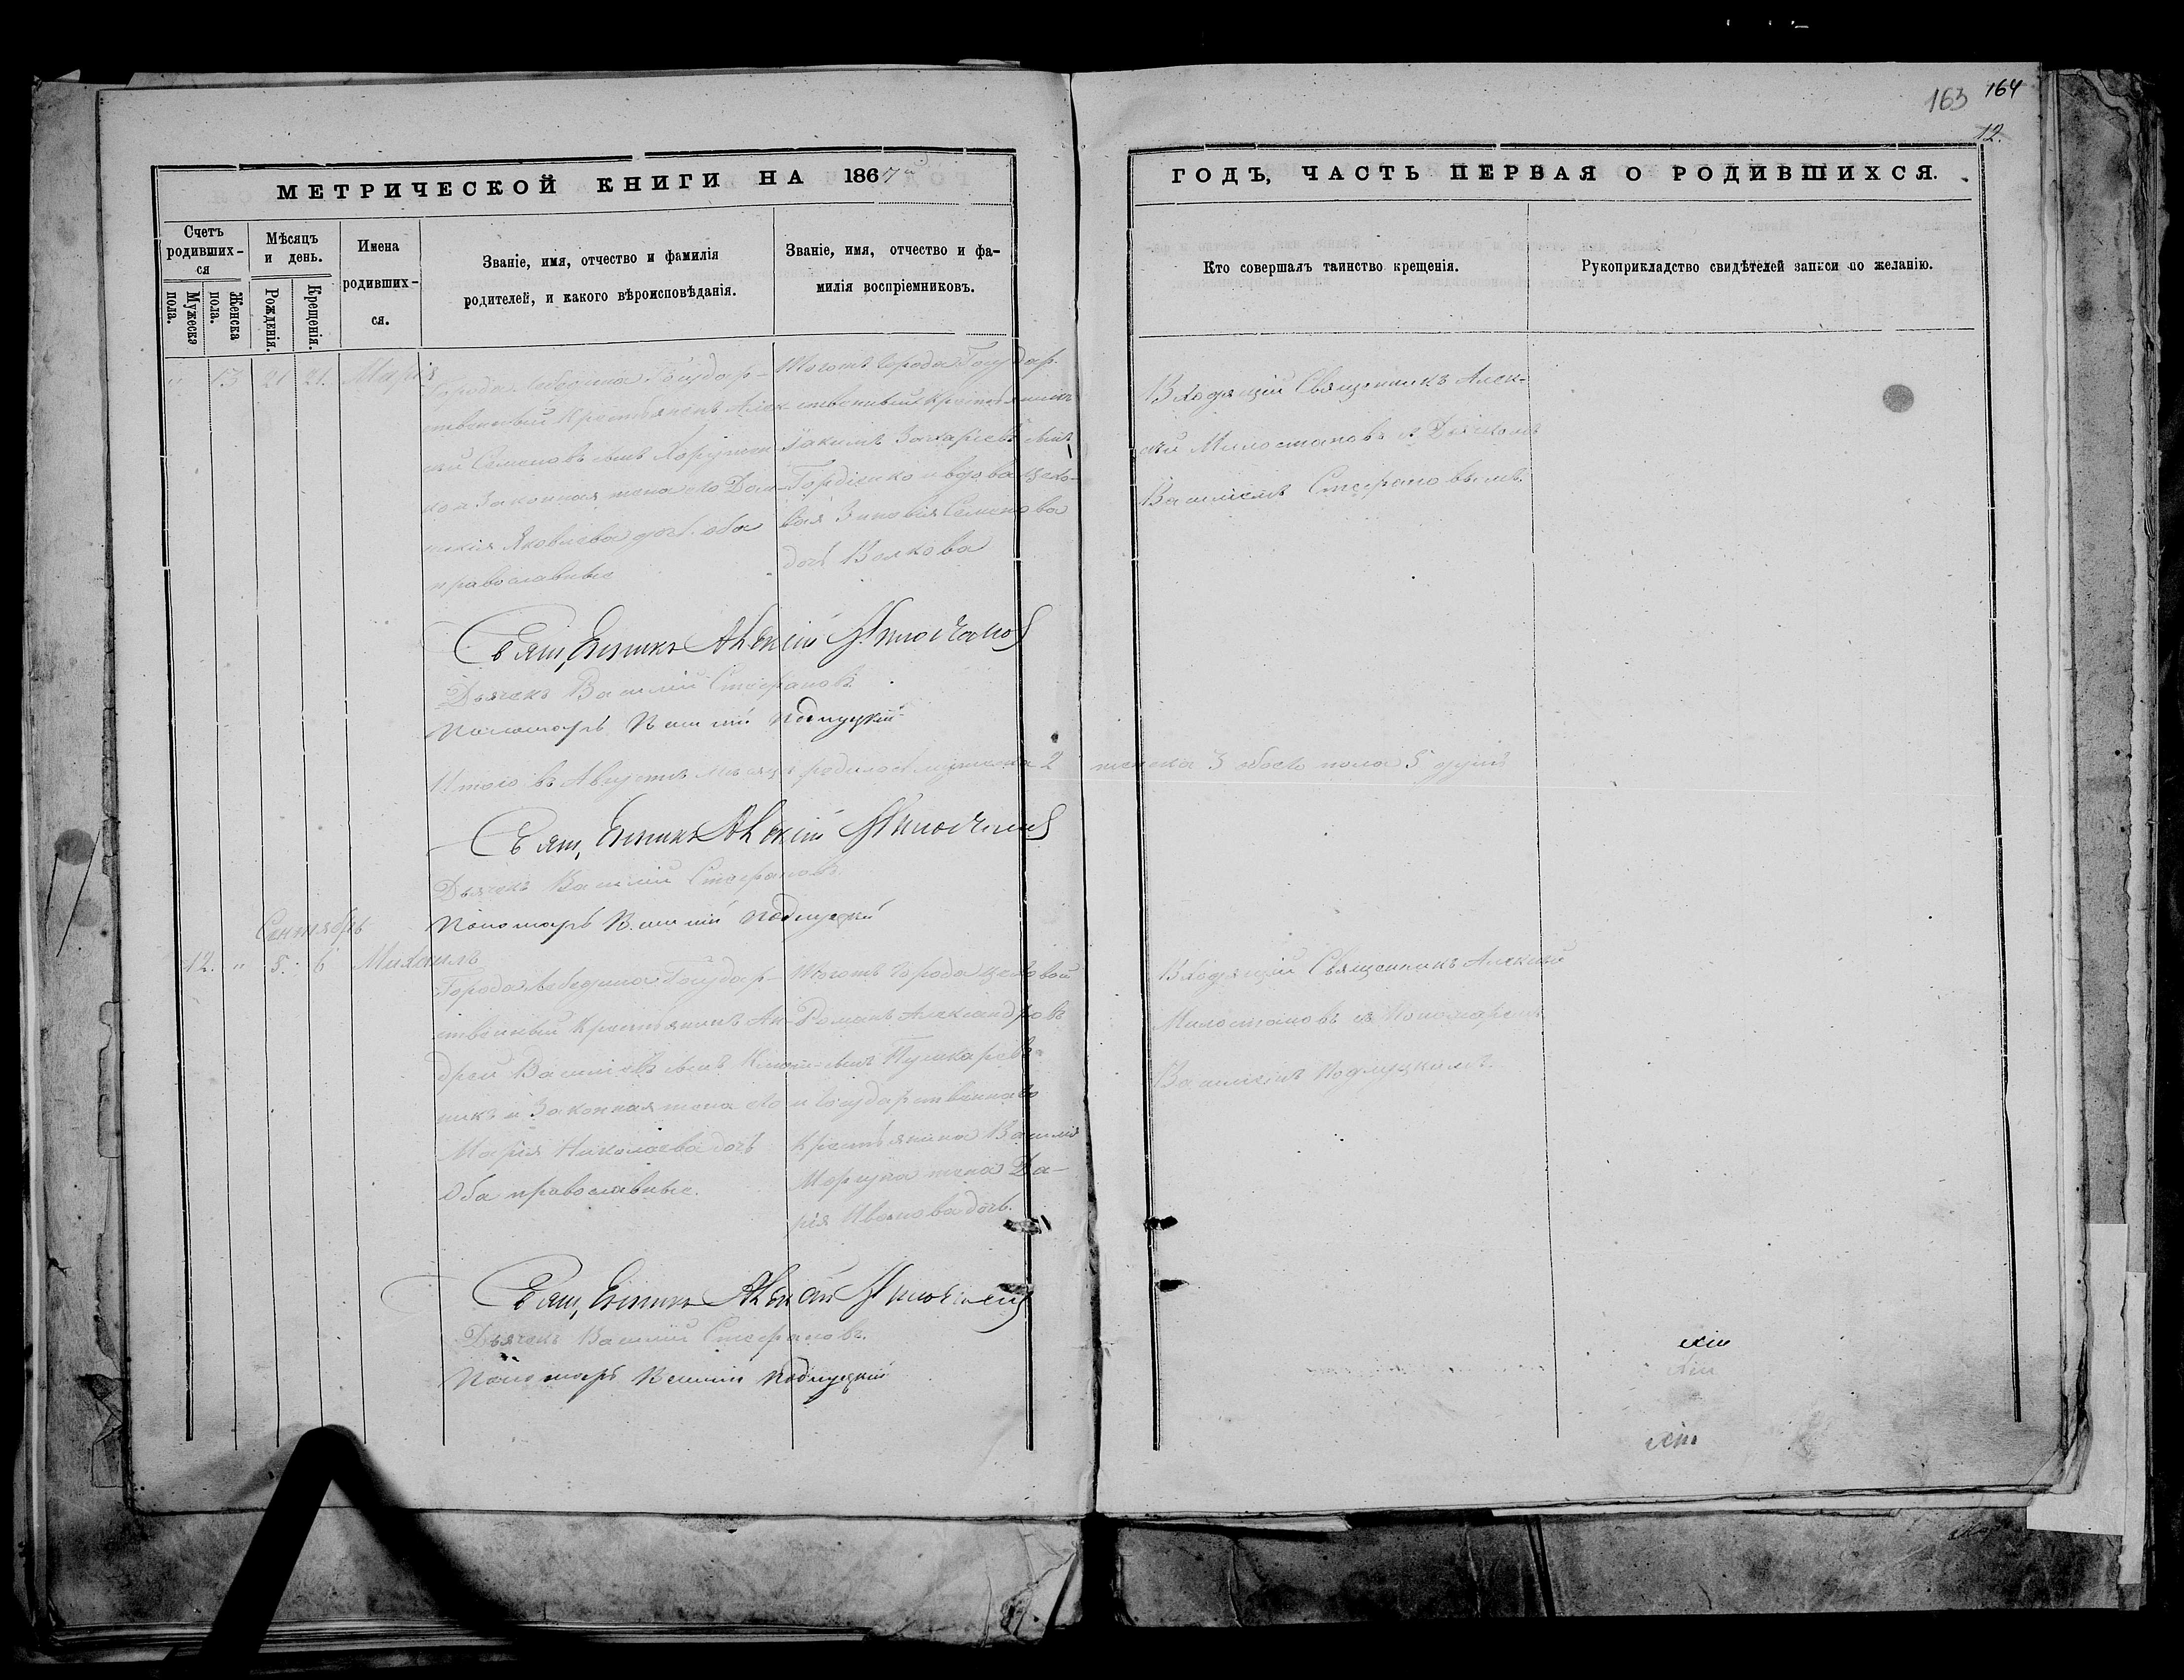 163 164
12.
МЕТРИЧЕСКОЙ КНИГИ НА 1867й
ГОДЪ, ЧАСТЬ ПЕРВАЯ О РОДИВШИХСЯ.
Счетъ родивших-ся
Мужеска пола.
Женска пола.
Мѣсяцъ и день.
Рожденія.
Крещенія.
Имена родивших-ся.
Званіе, имя, отчество и фамилія
родителей, и какого вѣроисповѣданія.
Званіе, имя, отчество и фа-
милія воспріемниковъ.
Кто совершалъ таинство крещенія.
Рукоприкладство свидѣтелей записи по желанію.
" 13 21 21. Марія
Города Лебедина Государ-
ственный Крестьянинъ Алек-
сѣй Семеновъ сынъ
Законная жена его Дом-
никія Яковлева дочь. оба
православные
Тогожъ Города Государ-
ственный Крестьянинъ
Іакимъ Захаріевъ сынъ
Гордіенко и вдова цехо-
вая Зиновія Семенова
дочь Волкова
Входящій Священникъ Алек-
сѣй Милостановъ съ Дьячкомъ
Василіемъ Стефановымъ.
Священникъ Алексій Милостановъ
Дьячекъ Василій Стефановъ.
Пономарь Василій Подлуцкій
Итого въ Августѣ мѣсяцѣ родилось мужеска 2 женска 3 обоего пола 5 душъ
Священникъ Алексій Милостановъ
Дьячекъ Василій Стефановъ.
Пономарь Василій Подлуцкій
Сентябрь
12. " 5. 6 Михаилъ
Города Лебедина Государ-
ственный Крестьянинъ Ан-
дрей Василіевъ сынъ
и Законная жена его
Марія Николаева дочь
Оба православные.
Тогожъ Города цеховой
Романъ Александровъ
сынъ Пушкаревъ
и Государственнаго
Крестьянина Василія
жена Да-
рія Иванова дочь.
Входящій Священникъ Алексій
Милостановъ съ Пономаремъ
Василіемъ Подлуцкимъ.
Священникъ Алексій Милостановъ
Дьячекъ Василій Стефановъ.
Пономарь Василій Подлуцкій